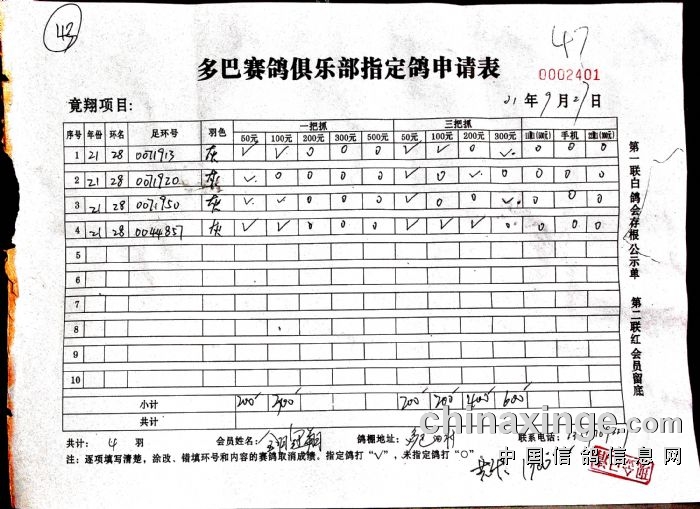 43
47
多巴赛鸽俱乐部指定鸽申请表
0002401
竟翔项目:
21年9月27日
序号 年份 环名 足环号 羽色 一把抓 三把抓
50元 100元 200元 300元 500元 50元 100元 200元 300元 手机
1 21 28 0071913 灰 √ √ 0 0 0 √ √ 0 √ 0 0 0
2 21 28 0071920 灰 √ 0 0 0 0 √ 0 0 √ 0 0 0
3 21 28 0071950 灰 √ √ 0 0 0 √ 0 0 √ 0 0 0
4 21 28 0044857 灰 √ √ 0 0 0 √ √ √ 0 0 0
5
6
7
8
9
10
小计 200 200 400 600
共计
共计: 4 羽 会员姓名: 鸽棚地址: 多巴 联系电话:
注: 逐项填写清楚，涂改、错填环号和内容的赛鸽取消成绩。指定鸽打“V”，未指定鸽打“O”
共计: 1700
第一联白鸽会存根公示单
第二联红会员留底
chinaxinge.com
中国信鸽信息网